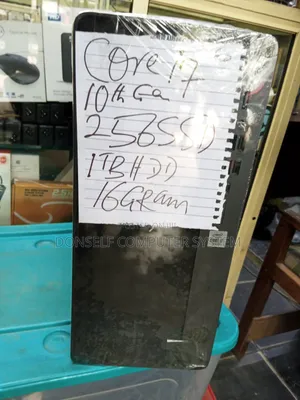 Core i7
10th Gen
256SSD
1TB HDD
16G Ram
DONSELF COMPUTER SYSTEM